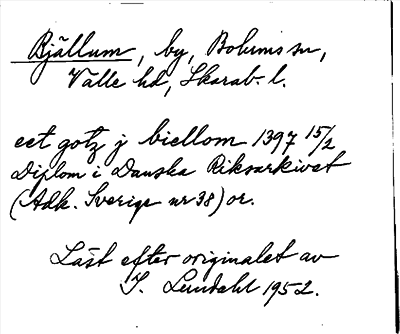 Bjällum, by, Bolums sn,
Valle hd, Skarab. l.
eet gotz j biellom 1397 15/2
Diplom i Danska Riksarkivet
(Adk. Sverige nr 38) or.
Läst efter originalet av
I. Lundahl 1952.